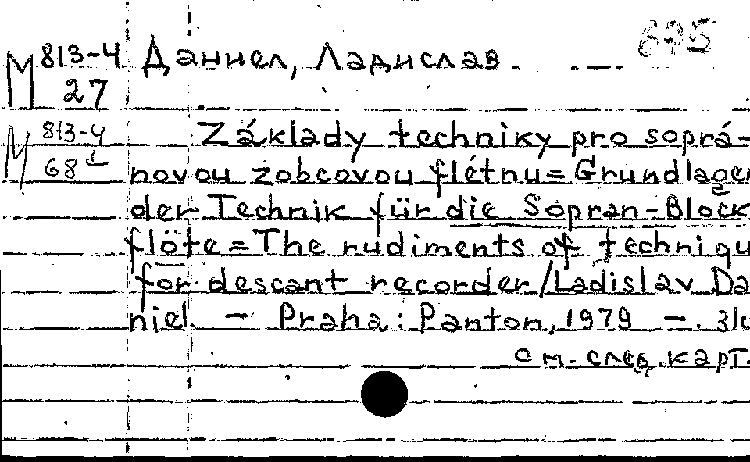 М 813-4 Даниел, Ладислав. — 695
27
М 813-4 Základy techniky pro soprá-
68 novou zobcovou flétnu = Grundlagen
der Technik für die Sopran-Block
flöte = The rudiments of techniqu
for descant recorder / Ladislav Da
niel. — Praha: Panton, 1979 —. 31
см. след. карт.